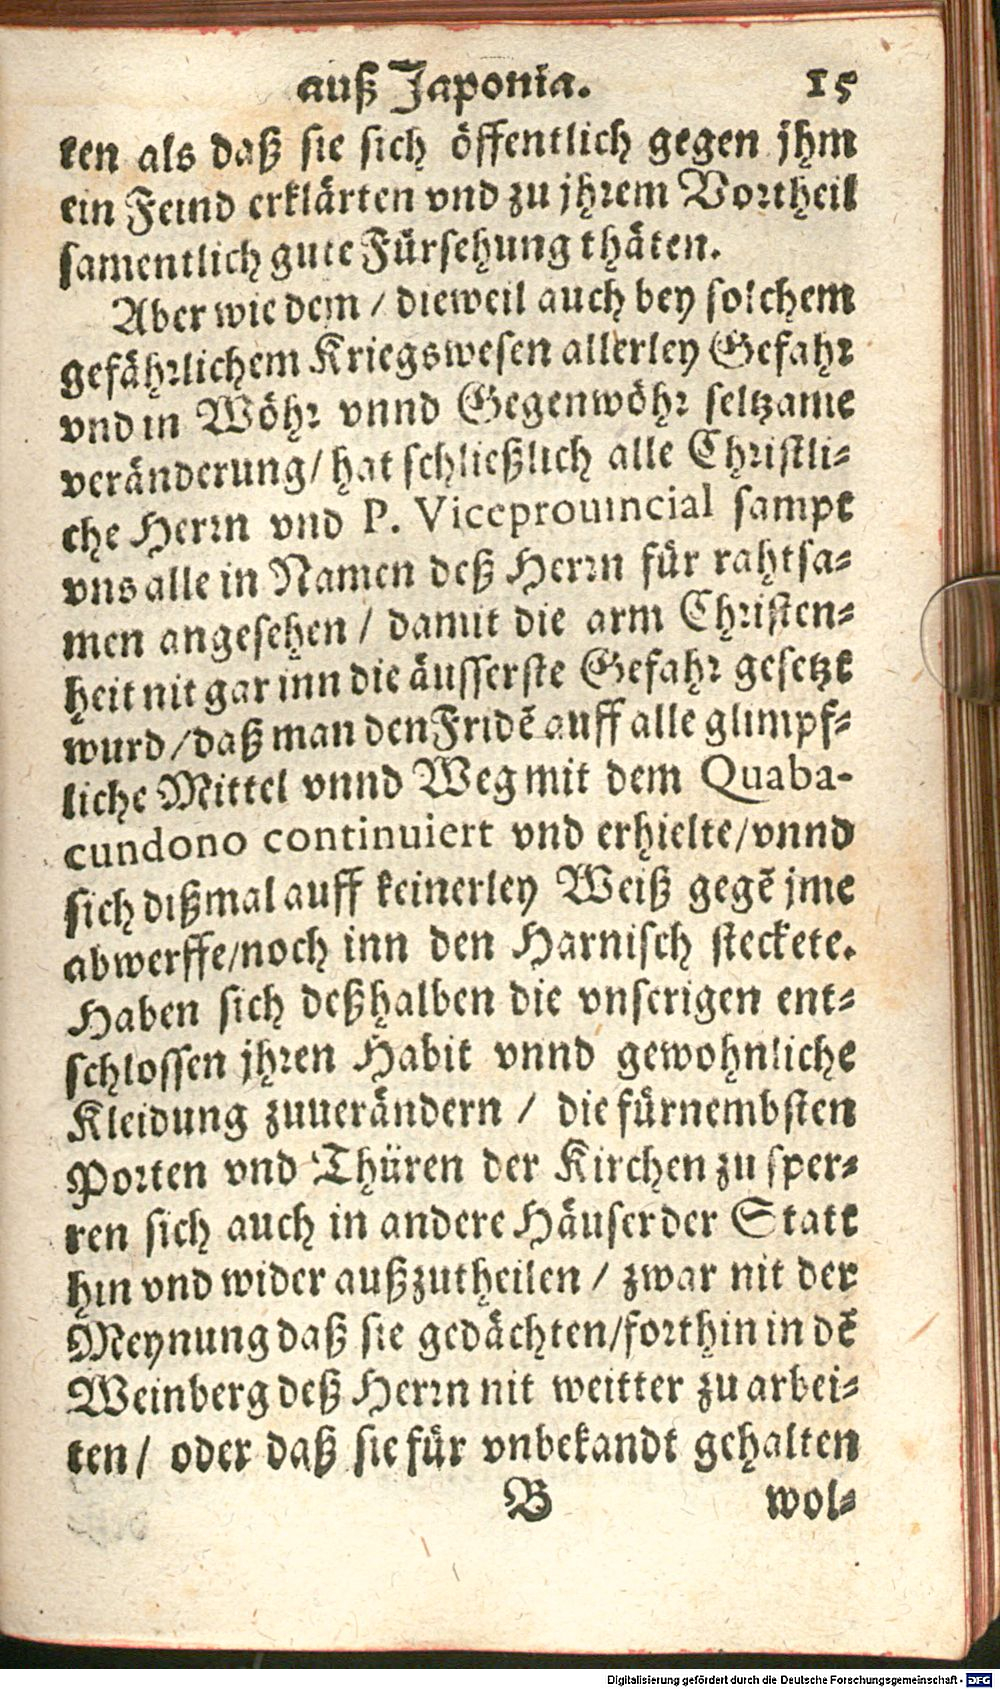 auß Japonia. 15
ken als daß sie sich öffentlich gegen jhm
ein Feind erklärten vnd zu jhrem Vortheil
samentlich gute Fürsehung thäten.
Aber wie dem / dieweil auch bey solchem
gefährlichem Kriegswesen allerley Gefahr
vnd in Wöhr vnnd Gegenwöhr seltzame
veränderung / hat schließlich alle Christli-
che Herrn vnd P. Viceprouincial sampt
vns alle in Namen deß Herrn für rahtsa-
men angesehen / damit die arm Christen-
heit nit gar inn die äusserste Gefahr gesetzt
wurd / daß man den Fridẽ auff alle glimpf-
liche Mittel vnnd Weg mit dem Quaba-
cundono continuiert vnd erhielte / vnnd
sich dißmal auff keinerley Weiß gegẽ jme
abwerffe / noch inn den Harnisch steckete.
Haben sich deßhalben die vnserigen ent-
schlossen jhren Habit vnnd gewohnliche
Kleidung zuuerändern / die fürnembsten
Porten vnd Thüren der Kirchen zu sper-
ren sich auch in andere Häuser der Statt
hin vnd wider außzutheilen / zwar nit der
Meynung daß sie gedächten / forthin in dẽ
Weinberg deß Herrn nit weitter zu arbei-
ten / oder daß sie für vnbekandt gehalten
B wol-
Digitalisierung gefördert durch die Deutsche Forschungsgemeinschaft - DFG